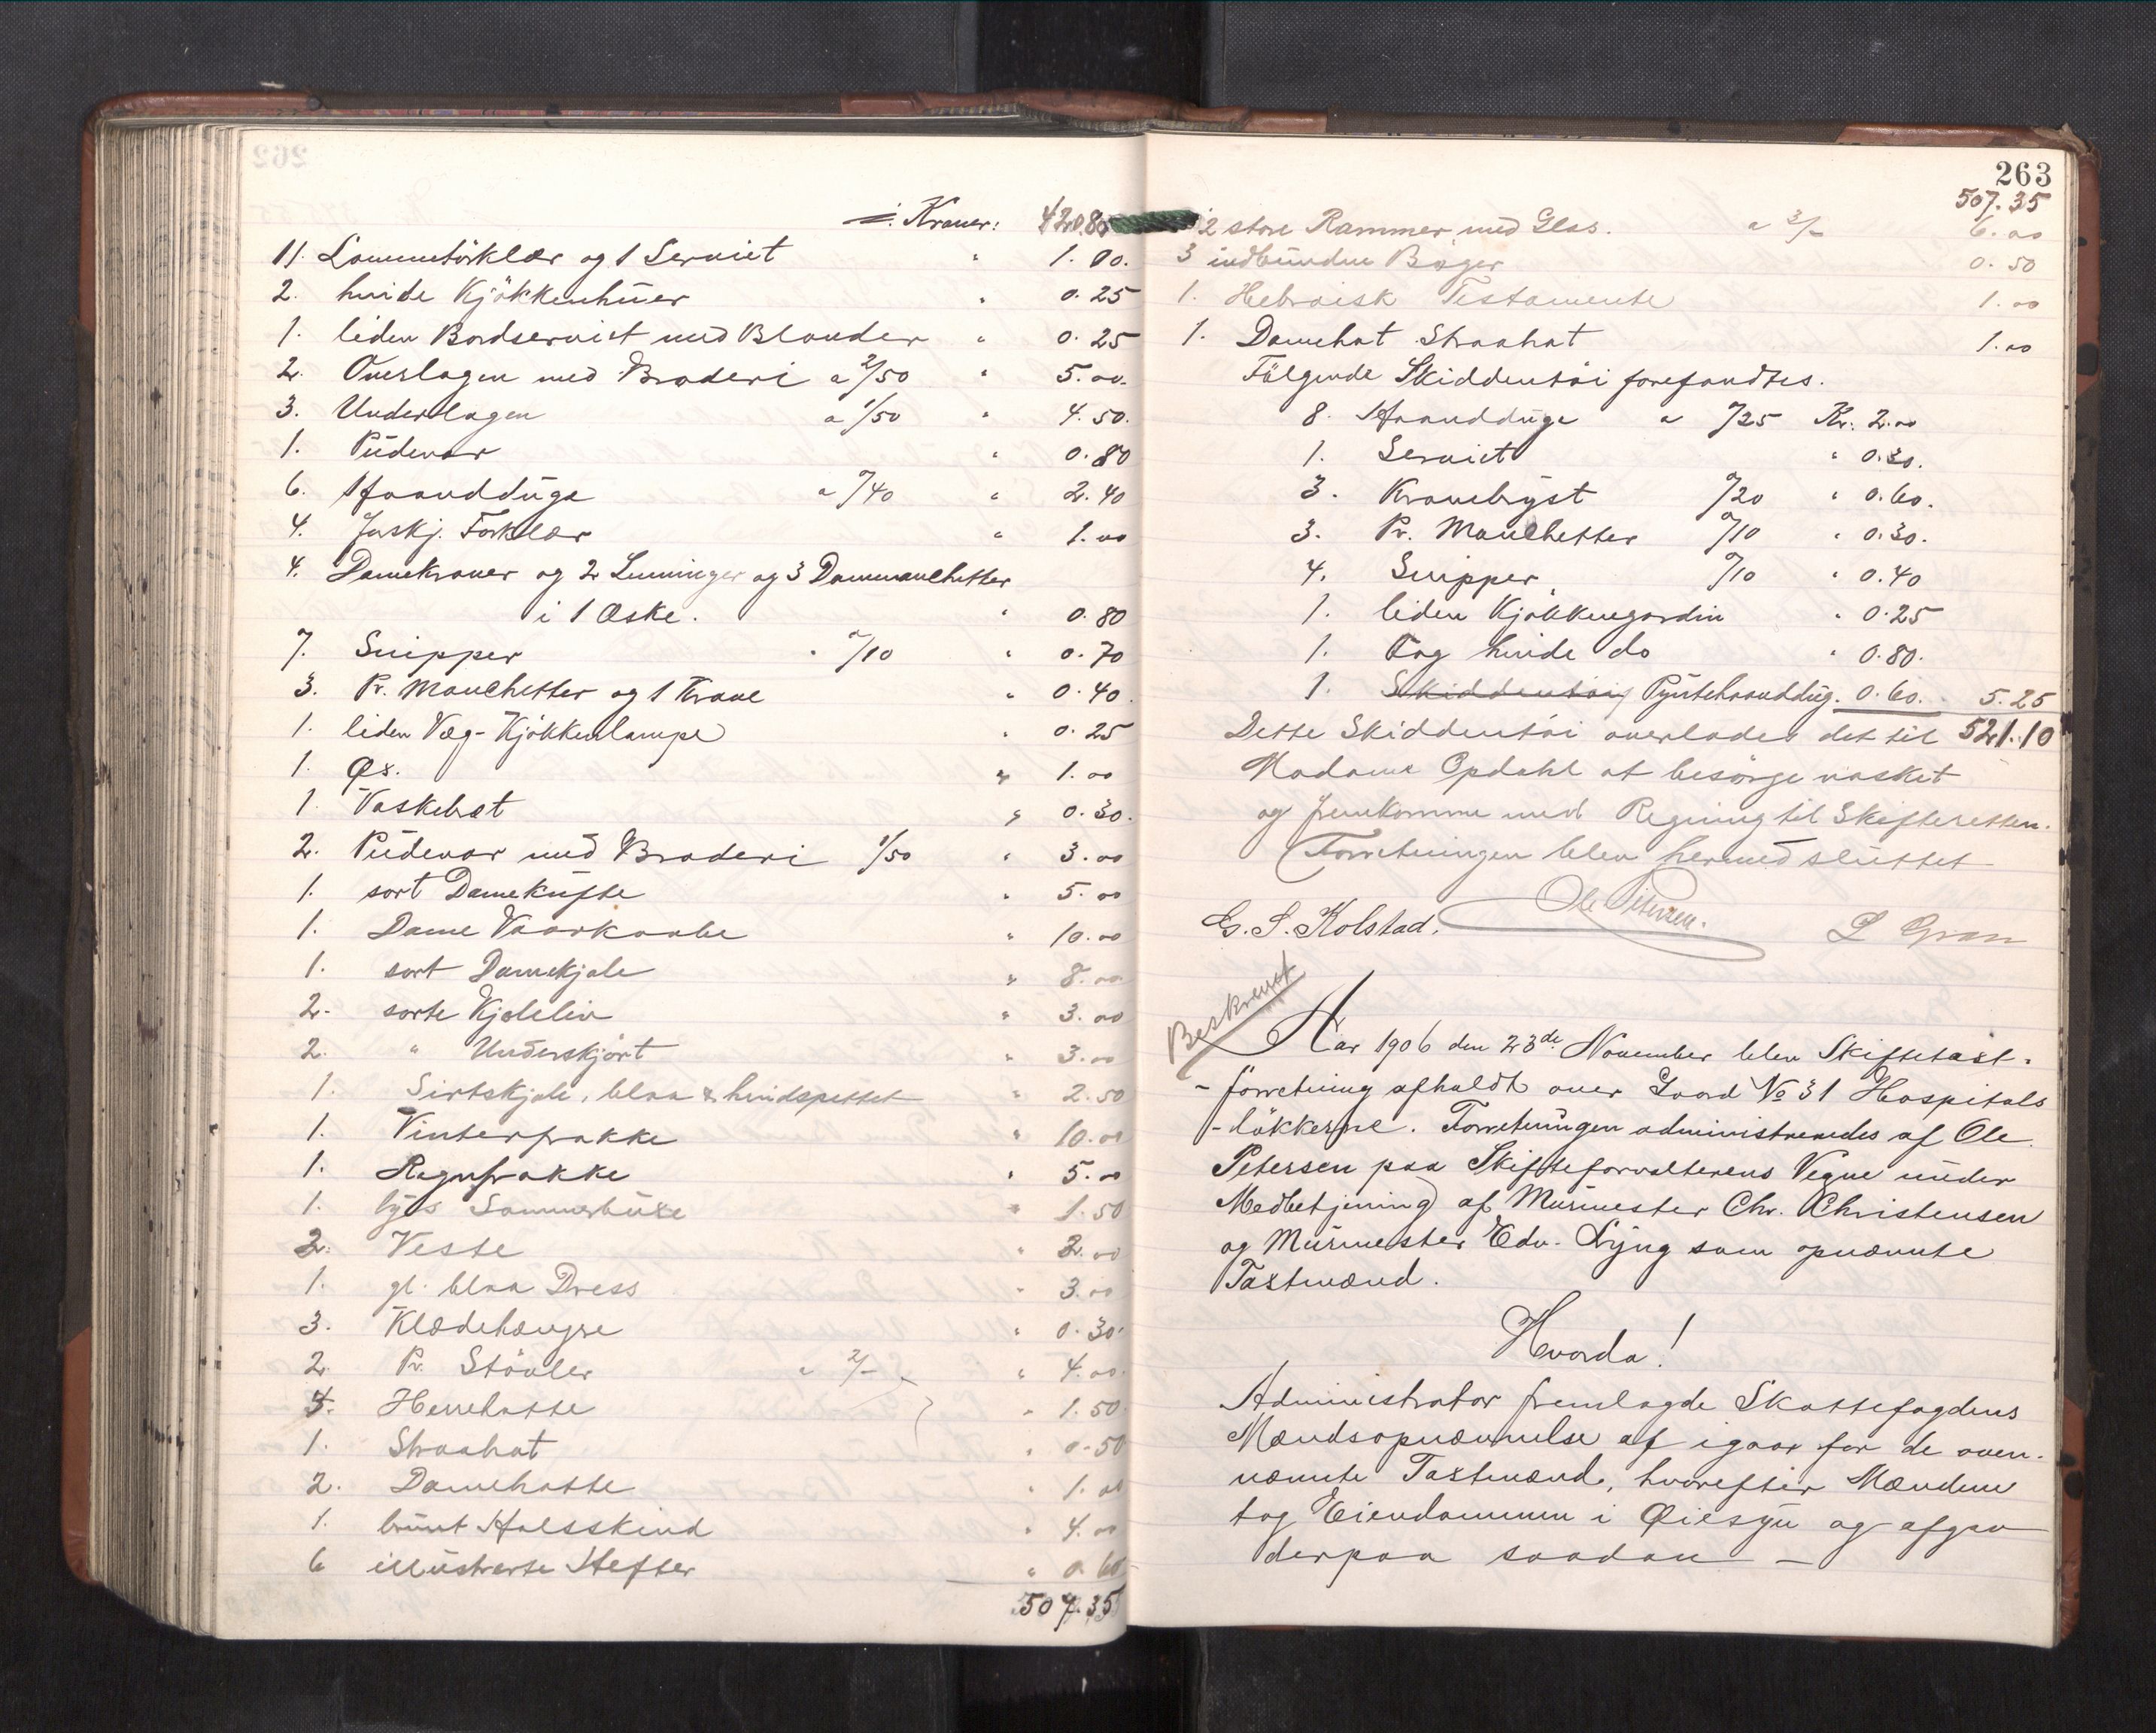 Kroner: 420.80
11. Lommetörklær og 1 Serviet " 1.00.
2. hvide Kjökkenhuer " 0.25
1. liden Bordserviet med Blonder " 0.25
2. Overlagen med Broderi a 2/50 " 5.00.
3. Underlagen a 1/50 " 4.50.
1. Pudevar " 0.80
6. Haandduge a "/40 " 2.40
4. Forklær " 1.00
4. Damekraver og 2 Linninger og 3 Damemanchetter
i 1 Æske. " 0.80
7. Snipper " "/10 " 0.70
3. Pr. Manchetter og 1 Krave " 0.40.
1. liden Væg-Kjökkenlampe " 0.25
1. Øx. " 1.00
1. Vaskebræt " 0.30.
2. Pudevar med Broderi 1/50 " 3.00
1. sort Damekufte " 5.00
1. Dame Vaarkaabe " 10.00
1. sort Damekjole " 8.00
2. sorte Kjoleliv " 3.00
2. " Underskjört " 3.00
1. Sirtskjole, blaa & hvidspettet " 2.50
1. Vinterfrakke " 10.00
1. Regnfrakke " 5.00
1. lys Sommerbuxe " 1.50
2. Veste " 2.00
1. gl. blaa Dress " 3.00
3. Klædehængre " 0.30.
2. Pr. Stövler a 2/- " 4.00.
4. Herrehatte " 1.50
1. Straahat " 0.50
2. Damehatte " 1.00
1. brunt Halsskind " 4.00
6 illustrerte Hefter " 0.60
507.35
263
507.35
2 store Rammer med Glas. a 3/- 6.00
3 indbundne Bøger 0.50
1. Hebraisk Testamente 1.00
1. Damehat Straahat 1.00
Fölgende Skiddentöi forefandtes.
8. Haandduge a "/25 Kr. 2.00
1. Serviet " 0.30.
3. Kravebryst "/20 " 0.60.
3. Pr. Manchetter "/10 " 0.30.
4. Snipper "/10 " 0.40
1. liden Kjökkengardin " 0.25
1. Fag hvide do " 0.80.
1. Skiddentöi Pyntehaanddug. 0.60. 5.25
Dette Skiddentöi overlades det til 521.10
Madame Opdahl at besörge vasket
og fremkomme med Regning til Skifteretten.
Forretningen blev hermed sluttet
Ole Petersen.
G. S. Kolstad. L Gran
Beskrevet
Aar 1906 den 23de November blev Skiftetaxt-
-forretning afholdt over Gaard No 31 Hospitals
-lökkerne. Forretningen administreredes af Ole
Petersen paa Skifteforvalterens Vegne under
Medbetjening af Murmester Chr. Christensen
og Murmester Edv. Lyng som opnævnte
Taxtmænd.
Hvorda!
Administrator fremlagde Skattefogdens
Mændsopnævnelse af igaar for de oven-
nævnte Taxtmænd, hvorefter Mændene
tog Eiendommen i Øiesyn og afgav
derpaa saadan —